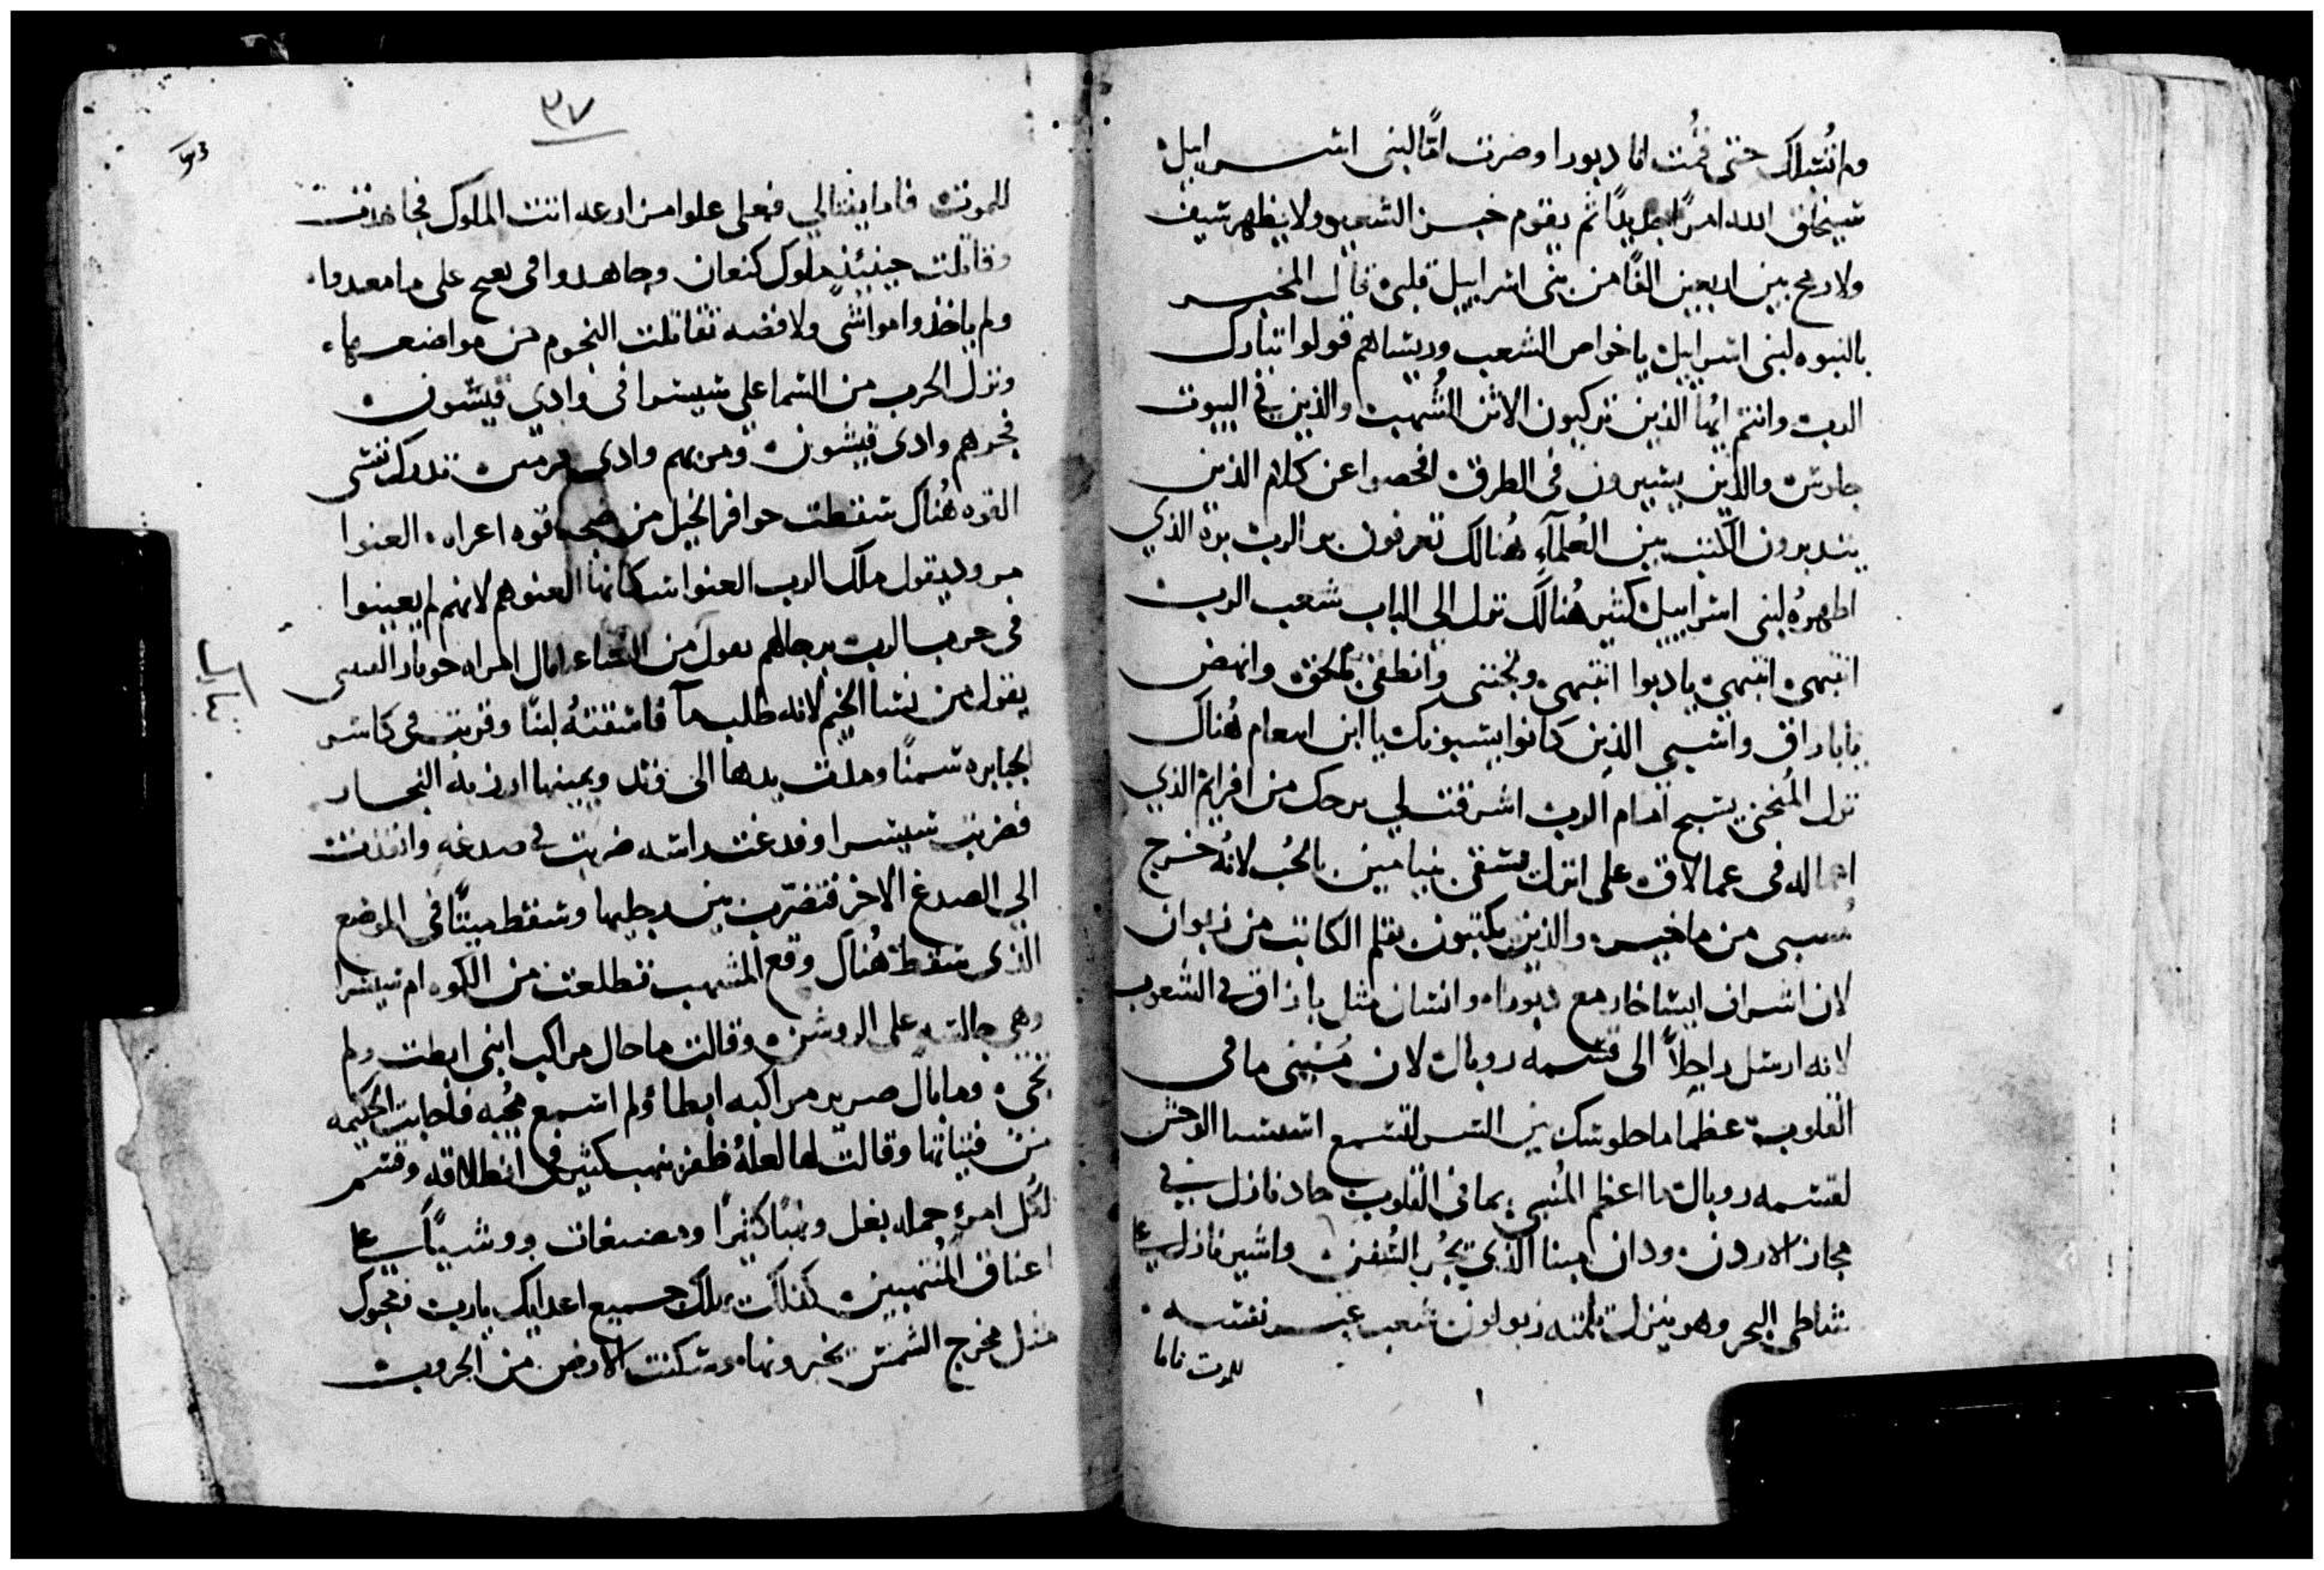 ولم تُشلك حتى قمُت انا دبورا وصرت امًّا لبنى اسراييل
سيخلق الله امرًا جديدًا ثم يقوم خبز الشعير ولا يظهر سيف
ولا رمح بين اربعين الفًا من بنى اسراييل قلبى قال المخبر
بالنبوه لبنى اسراييل يا خواص الشعب وريساهم قولوا تبارك
الرب وانتم ايُها الذين تركبون الاتن الشُهب والذين في البيوت
جلوس والذين يسيرون فى الطرق افحصوا عن كلام الذين
يتدبرون الكتب بين العُلمآء هُنالك تعرفون بر الرب بره الذي
اظهرهُ لبنى اسراييل كثير هُنالك نزل الى الباب شعب الرب
انتبهى انتبهى يا دبورا انتبهى وانطقى وانهض
يا باراق واسبي الذين كانوا يسبونك يا ابن ابينعام هُناك
نزل المُنجى يسبح امام الرب اشرقت لي من افرايم الذي
فى عمالاق على اترك بنيامين بالحُب لانهُ خرج
من ماخير والذين يكتبون بقلم الكاتب من زبولون
لان اشراف ايساخار مع دبورا وانسان مثل باراق في الشعوب
لانه ارسل راجلًا الى قسمه روبال لان مُنبى ما فى
القلوب عظما ما جلوسك بين لتسمع الوحش
لقسمه روبال ما اعظم المُنبي بما فى القلوب جاد نازل في
مجاز الاردن ودان مينا الذي يجُر السُفن واشير نازل على
شاطى البحر وهو ينزل زبولون شعب عير نفسه
للموت فاما
٣٧
للموت فاما يفتالي فعلى علوا من اتت الملوك فجاهدت
وقاتلت حينئذٍ ملوك كنعان وجاهدوا فى على ما معدوا
ولم ياخذوا مواشى ولا فضه تقاتلت النجوم من مواضعها
ونزل الحرب من السما على سيسرا فى وادي قيشون
فجرهم وادى قيشون وادى تدرك نفسى
القوه هُناك سقطت حوافر الخيل من قوه اعزاه العنوا
يقول ملك الرب العنوا سكانها العنوهم لانهم لم يعينوا
فى حرب الرب برجالهم من النساء المراه حوبار
يقول من نسا الخيم لانه طلب مآ فاسقتهُ لبنًا وقربت فى كاس
الجبابره سمنًا ومدت يدها الى وتد ويمينها ارزبه النجار
فضربت سيسرا وفدغت راسه ضربت في صدغه وانفذت
الي الصدغ الاخر فتضرب بين رجليها وسقط ميتًا فى الموضع
الذى سقط هُناك وقع المنتهب تطلعت من الكوه ام سيسرا
وهى جالسه على الروشن وقالت ما حال مراكب ابنى ابطت ولم
تجى وما بال صرير مراكبه ابطا ولم اسمع فاجابت الحكيمه
من فتياتها وقالت لها لعلهُ ظفر بنهب كثير فى انطلاقه وقسم
لكل امرءٍ حمله بغل ونهبًا كثيرًا ومصبغات ووشيًا على
اعناق المُنتهبين كذلك يهلك جميع اعدايك يا رب ومحبوك
مثل مخرج الشمس بجبرونها وسكنت الارض من الحروب